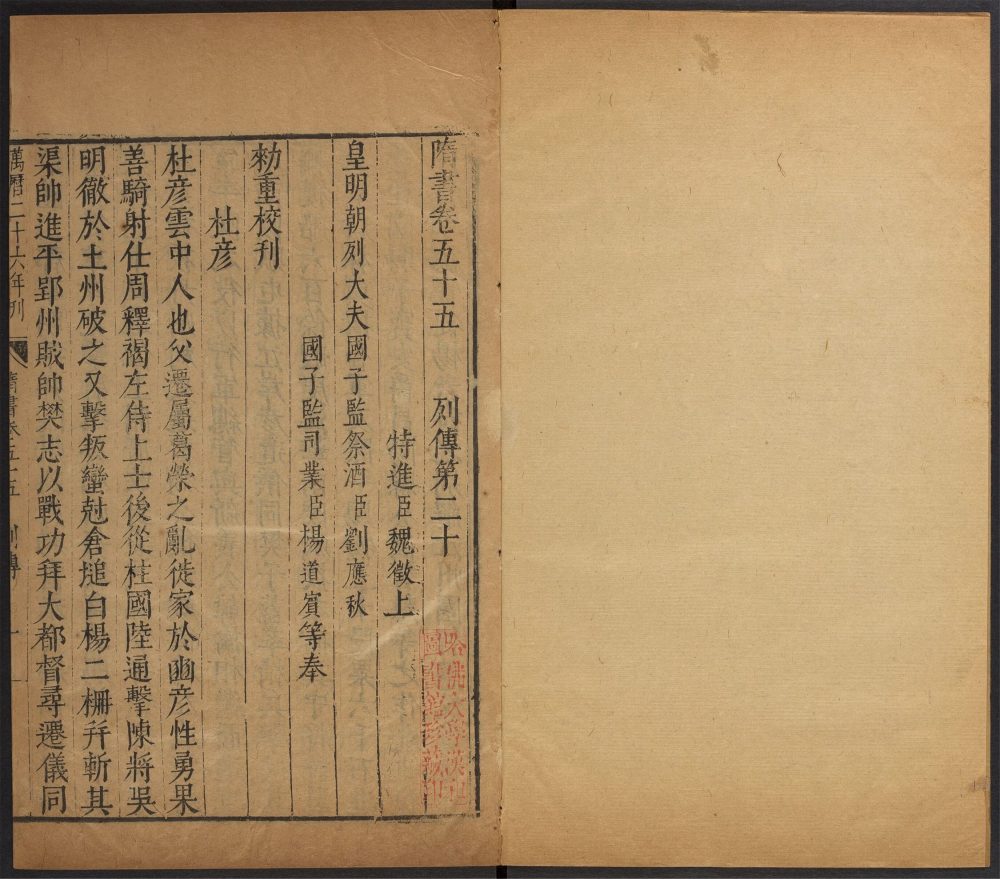 隋書卷五十五　列傳第二十
特進臣魏徵上
皇明朝列大夫國子監祭酒臣劉應秋
國子監司業臣楊道賓等奉
勑重校刊
杜彦
杜彦雲中人也父遷屬葛榮之亂徙家於豳彦性勇果
善騎射仕周釋褐左侍上士後從柱國陸通擊陳將吳
明徹於土州破之又擊叛蠻尅倉塠白楊二柵并斬其
渠帥進平郢州賊帥樊志以戰功拜大都督尋遷儀同
萬曆二十六年刊　隋書卷五十五　列傳　一
哈佛大學漢和
圖書館珍藏印